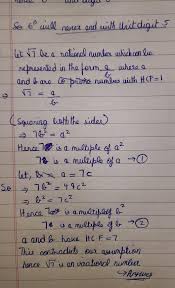 So 6ⁿ will never end with digit 5
Let √7 be a rational number which can be
represented in the form a/b where a
and b are co prime number with HCF = 1
⇒ √7 = a/b
(Squaring both the sides)
⇒ 7b² = a²
Hence 7 is a multiple of a²
7 is a multiple of a → ①
let, a = 7c
So ⇒ 7b² = 49c²
⇒ b² = 7c²
Hence 7 is a multiple of b²
7 is a multiple of b → ②
a and b have HCF = 7
This contradicts our assumption
hence √7 is an irrational number
→ Answer